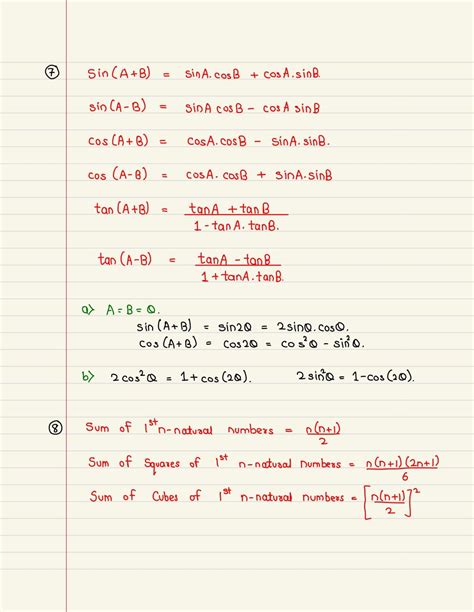 ⑦ sin(A+B) = sinA.cosB + cosA.sinB.
sin(A-B) = sinA cosB - cosA sinB
cos(A+B) = cosA.cosB - sinA.sinB.
cos (A-B) = cosA.cosB + sinA.sinB
tan(A+B) = tanA + tanB / 1-tanA.tanB.
tan(A-B) = tanA - tanB / 1+tanA.tanB.
a) A=B=θ.
sin(A+B) = sin2θ = 2sinθ.cosθ.
cos(A+B) = cos2θ = cos²θ - sin²θ.
b) 2cos²θ = 1+cos(2θ). 2sin²θ = 1-cos(2θ).
⑧ Sum of 1st n-natural numbers = n(n+1) / 2
Sum of Squares of 1st n-natural numbers = n(n+1)(2n+1) / 6
Sum of Cubes of 1st n-natural numbers = [n(n+1) / 2]²